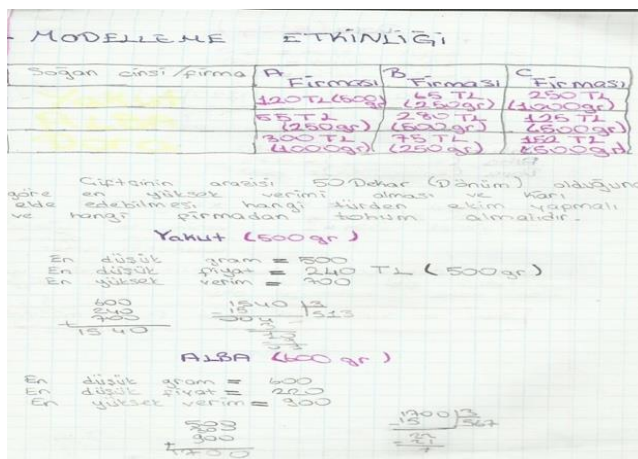 - MODELLEME ETKİNLİĞİ
Soğan cinsi/firma A Firması B Firması C Firması
Yakut 120 TL(500gr) 65 TL (250gr) 250 TL (1000gr)
55 TL (250gr) 280 TL (500gr) 125 TL (500gr)
300 TL (1000gr) 75 TL (250gr) 152 TL (500gr)
Çiftçinin arazisi 50 Dekar (Dönüm) olduğuna
göre en yüksek verimi olması ve karı
elde edebilmesi hangi türden ekim yapmalı
ve hangi firmadan tohum almalıdır.
Yakut (500 gr)
En düşük gram = 500
En düşük fiyat = 240 TL (500gr)
En yüksek verim = 700
600
240
700
+
1540
1540 3
-15 513
004
3
13
ALBA (600 gr)
En düşük gram = 600
En düşük fiyat = 220
En yüksek verim = 900
900
+1700
1700 3
-15 567
7